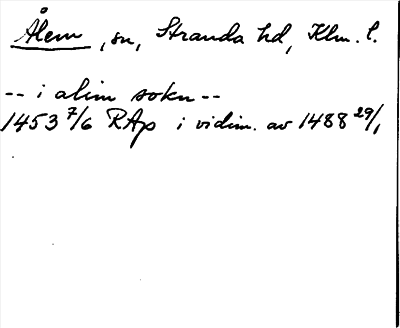 Ålem, sn, Stranda hd, Klm. l.
-- i alim sokn --
1453 7/6 RAp i vidim. av 1488 29/1